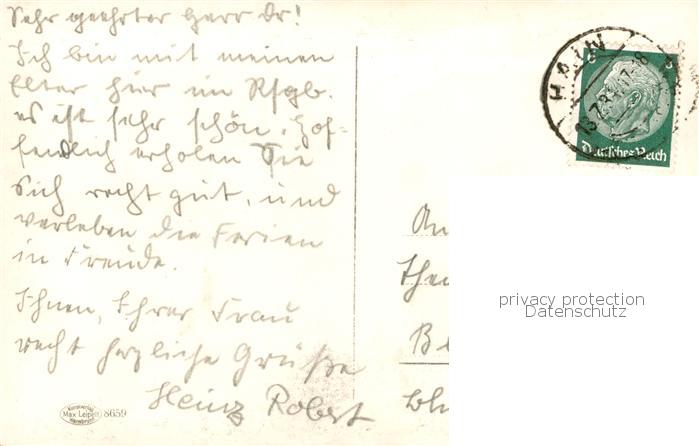 Sehr geehrter Herr Dr!
Ich bin mit meinen
Elter hier im Rsgb.
es ist sehr schön. Hof-
fendlich erholen Sie
sich recht gut, und
verleben die Ferien
in Freude.
Ihnen, Ihrer Frau
recht herzliche Grüße
Heinz Robert.
HAIN
Deutsches Reich
An
privacy protection
Datenschutz
Max Leipelt
8659